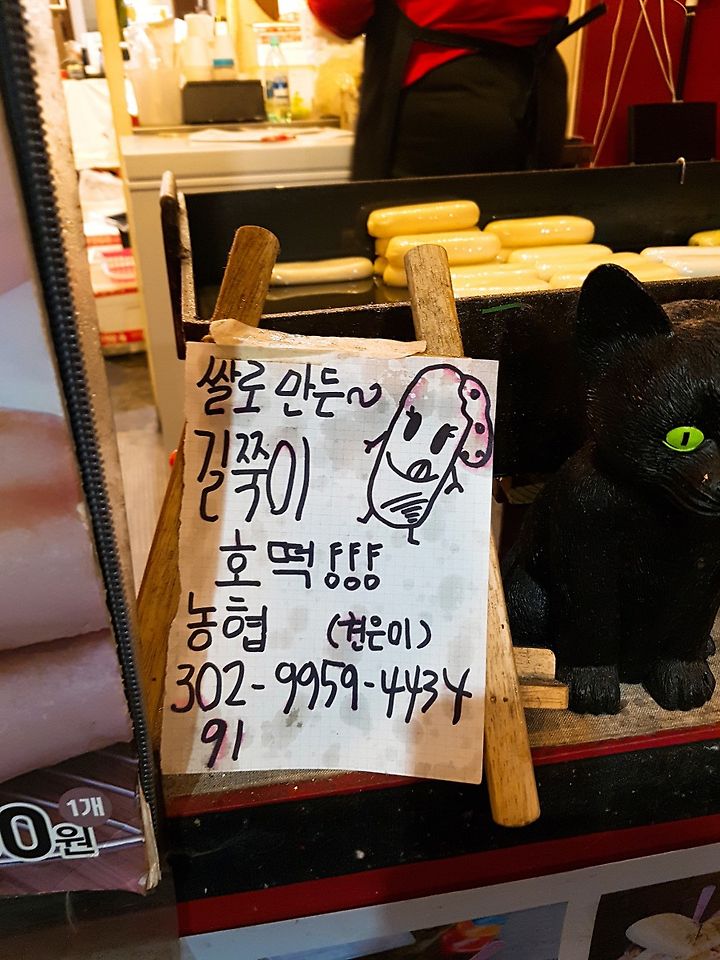 쌀로 만든~
길쭉이
호떡!!!
농협 (현은미)
302-9959-4434
91
1개
0원